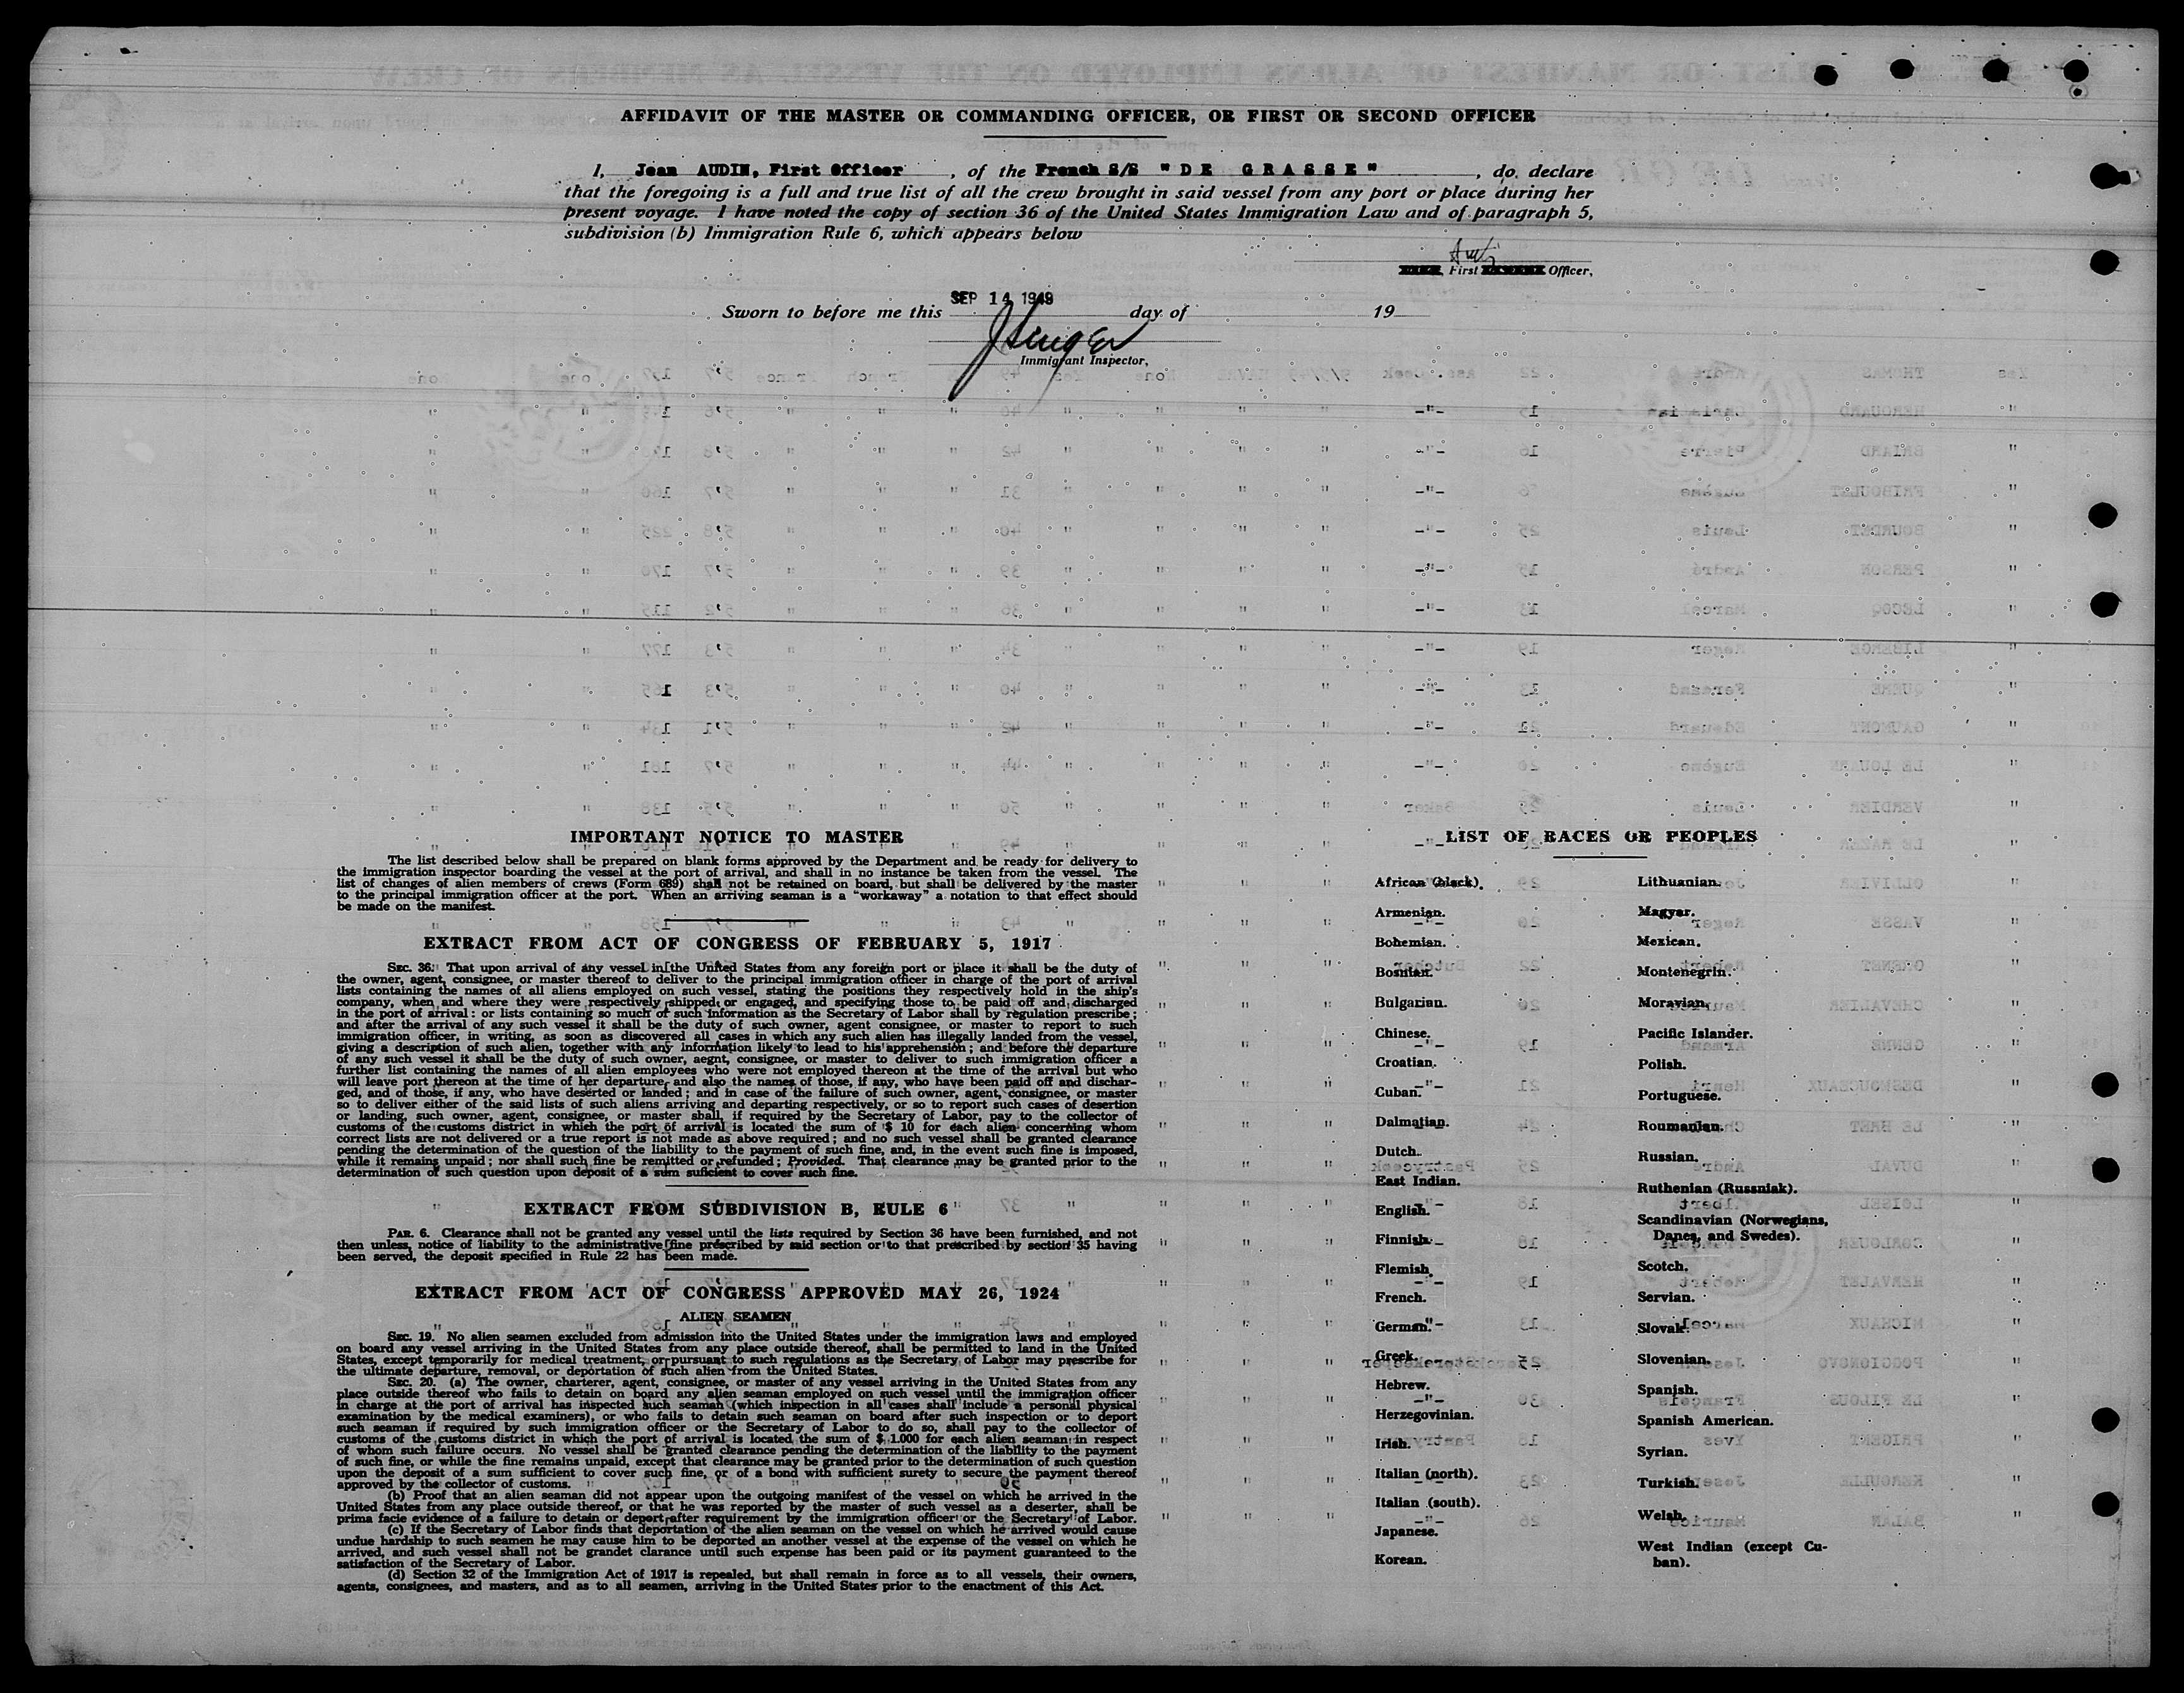 AFFIDAVIT OF THE MASTER OR COMMANDING OFFICER, OR FIRST OR SECOND OFFICER
I, Jean AUDIN, First Officer , of the French S/S "DE GRASSE" , do declare
that the foregoing is a full and true list of all the crew brought in said vessel from any port or place during her
present voyage. I have noted the copy of section 36 of the United States Immigration Law and of paragraph 5,
subdivision (b) Immigration Rule 6, which appears below
First Officer,
SEP 14 1949
Sworn to before me this day of 19
Immigrant Inspector.
IMPORTANT NOTICE TO MASTER
The list described below shall be prepared on blank forms approved by the Department and be ready for delivery to
the immigration inspector boarding the vessel at the port of arrival, and shall in no instance be taken from the vessel. The
list of changes of alien members of crews (Form 689) shall not be retained on board, but shall be delivered by the master
to the principal immigration officer at the port. When an arriving seaman is a "workaway" a notation to that effect should
be made on the manifest.
EXTRACT FROM ACT OF CONGRESS OF FEBRUARY 5, 1917
SEC. 36. That upon arrival of any vessel in the United States from any foreign port or place it shall be the duty of
the owner, agent, consignee, or master thereof to deliver to the principal immigration officer in charge of the port of arrival
lists containing the names of all aliens employed on such vessel, stating the positions they respectively hold in the ship's
company, when and where they were respectively shipped or engaged, and specifying those to be paid off and discharged
in the port of arrival: or lists containing so much of such information as the Secretary of Labor shall by regulation prescribe;
and after the arrival of any such vessel it shall be the duty of such owner, agent consignee, or master to report to such
immigration officer, in writing, as soon as discovered all cases in which any such alien has illegally landed from the vessel,
giving a description of such alien, together with any information likely to lead to his apprehension; and before the departure
of any such vessel it shall be the duty of such owner, aegnt, consignee, or master to deliver to such immigration officer a
further list containing the names of all alien employees who were not employed thereon at the time of the arrival but who
will leave port thereon at the time of her departure, and also the names of those, if any, who have been paid off and dischar-
ged, and of those, if any, who have deserted or landed; and in case of the failure of such owner, agent, consignee, or master
so to deliver either of the said lists of such aliens arriving and departing respectively, or so to report such cases of desertion
or landing, such owner, agent, consignee, or master shall, if required by the Secretary of Labor, pay to the collector of
customs of the customs district in which the port of arrival is located the sum of $ 10 for each alien concerning whom
correct lists are not delivered or a true report is not made as above required; and no such vessel shall be granted clearance
pending the determination of the question of the liability to the payment of such fine, and, in the event such fine is imposed,
while it remains unpaid; nor shall such fine be remitted or refunded; Provided. That clearance may be granted prior to the
determination of such question upon deposit of a sum suficient to cover such fine.
EXTRACT FROM SUBDIVISION B, RULE 6
PAR. 6. Clearance shall not be granted any vessel until the lists required by Section 36 have been furnished, and not
then unless, notice of liability to the administrative fine prescribed by said section or to that prescribed by section 35 having
been served, the deposit specified in Rule 22 has been made.
EXTRACT FROM ACT OF CONGRESS APPROVED MAY 26, 1924
ALIEN SEAMEN
SEC. 19. No alien seamen excluded from admission into the United States under the immigration laws and employed
on board any vessel arriving in the United States from any place outside thereof, shall be permitted to land in the United
States, except temporarily for medical treatment, or pursuant to such regulations as the Secretary of Labor may prescribe for
the ultimate departure, removal, or deportation of such alien from the United States.
SEC. 20. (a) The owner, charterer, agent, consignee, or master of any vessel arriving in the United States from any
place outside thereof who fails to detain on board any alien seaman employed on such vessel until the immigration officer
in charge at the port of arrival has inspected such seaman (which inspection in all cases shall include a personal physical
examination by the medical examiners), or who fails to detain such seaman on board after such inspection or to deport
such seaman if required by such immigration officer or the Secretary of Labor to do so, shall pay to the collector of
customs of the customs district in which the port of arrival is located the sum of $ 1.000 for each alien seaman in respect
of whom such failure occurs. No vessel shall be granted clearance pending the determination of the liability to the payment
of such fine, or while the fine remains unpaid, except that clearance may be granted prior to the determination of such question
upon the deposit of a sum sufficient to cover such fine, or of a bond with sufficient surety to secure the payment thereof
approved by the collector of customs.
(b) Proof that an alien seaman did not appear upon the outgoing manifest of the vessel on which he arrived in the
United States from any place outside thereof, or that he was reported by the master of such vessel as a deserter, shall be
prima facie evidence of a failure to detain or deport after requirement by the immigration officer or the Secretary of Labor.
(c) If the Secretary of Labor finds that deportation of the alien seaman on the vessel on which he arrived would cause
undue hardship to such seamen he may cause him to be deported an another vessel at the expense of the vessel on which he
arrived, and such vessel shall not be grandet clarance until such expense has been paid or its payment guaranteed to the
satisfaction of the Secretary of Labor.
(d) Section 32 of the Immigration Act of 1917 is repealed, but shall remain in force as to all vessels, their owners,
agents, consignees, and masters, and as to all seamen, arriving in the United States prior to the enactment of this Act.
LIST OF RACES OR PEOPLES
African (black).
Armenian.
Bohemian.
Bosnian.
Bulgarian.
Chinese.
Croatian.
Cuban.
Dalmatian.
Dutch.
East Indian.
English.
Finnish.
Flemish.
French.
German.
Greek.
Hebrew.
Herzegovinian.
Irish.
Italian (north).
Italian (south).
Japanese.
Korean.
Lithuanian.
Magyar.
Mexican.
Montenegrin.
Moravian.
Pacific Islander.
Polish.
Portuguese.
Roumanian.
Russian.
Ruthenian (Russniak).
Scandinavian (Norwegians,
Danes, and Swedes).
Scotch.
Servian.
Slovak.
Slovenian.
Spanish.
Spanish American.
Syrian.
Turkish.
Welsh.
West Indian (except Cu-
ban).